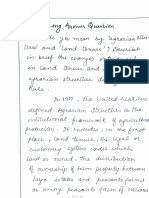 Long Answer Question
do you mean by 'agrarian Struc
ture' and 'land tenure'? Describe
in brief the changes introduced
in land tenure and
agrarian structure during
Rule.
In 1951, the United Nations
defined Agrarian Structure as the
institutional framework of agricultural
production. It includes, in the first
place, land tenure, the legal or
customary system under which
land is owned, the distribution
of ownership of farm property between
large estates and peasants farms or
among peasants farms of various